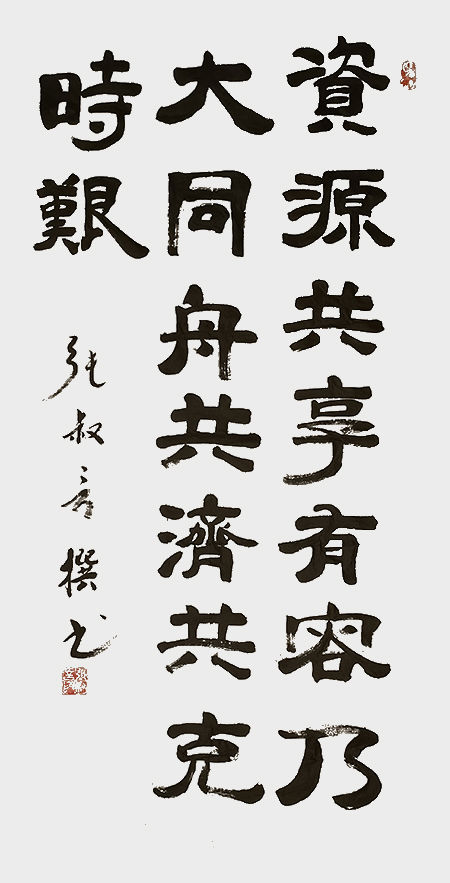 資源共享有容乃
大同舟共濟共克
時艱
張叔言撰书